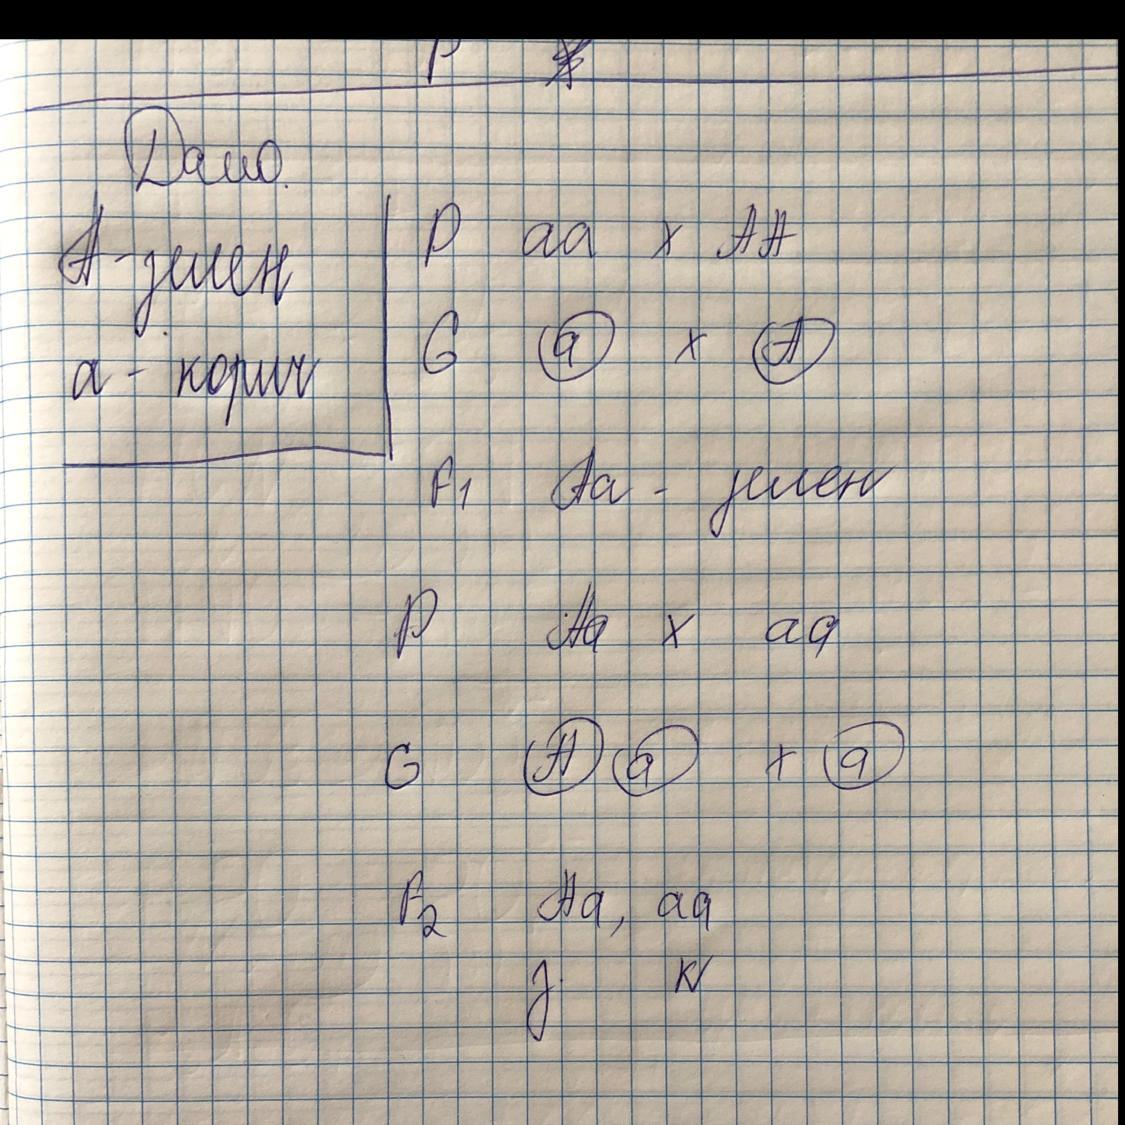 P
Дано.
A - зелен
a - корич
P aa x AA
G a x A
F1 Aa - зелен
P Aa x aa
G A a x a
F2 Aa, aa
з. к